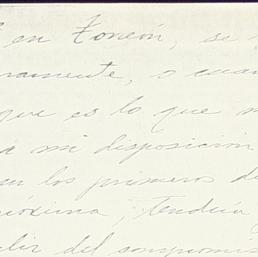 en Torreón, se
ramente, o cuan
que es lo que m
a mi disposición
en los primeros d
róxima, tendría
lir del compromis